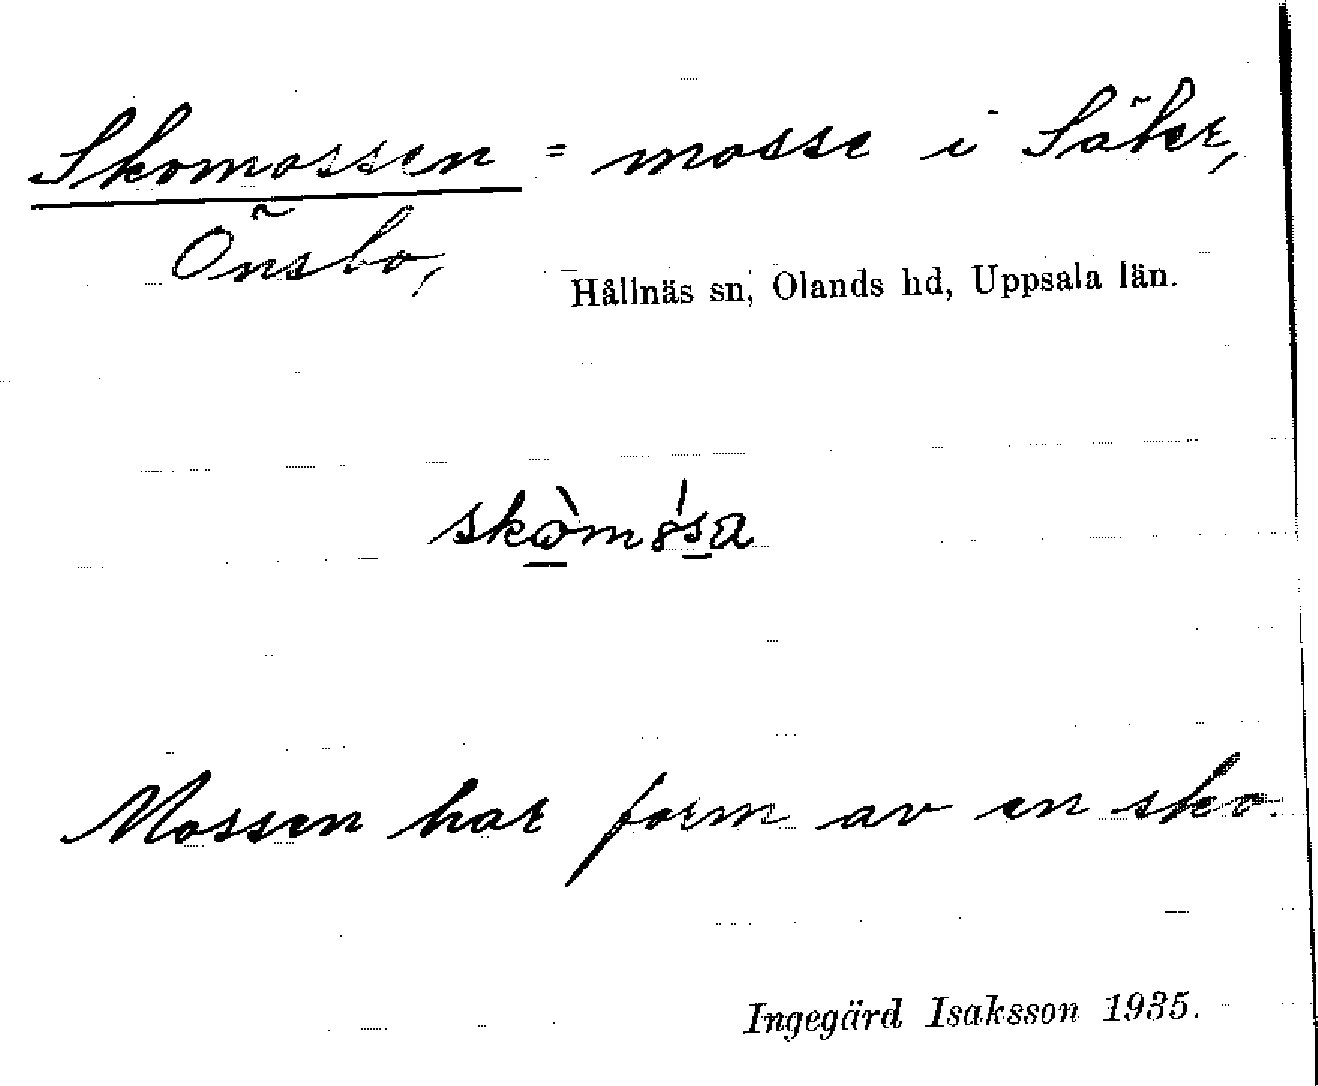 Skomossen = mosse i Säker,
Önsbo,
Hållnäs sn, Olands hd, Uppsala län.
Mossen har form av en sko.
Ingegärd Isaksson 1935.